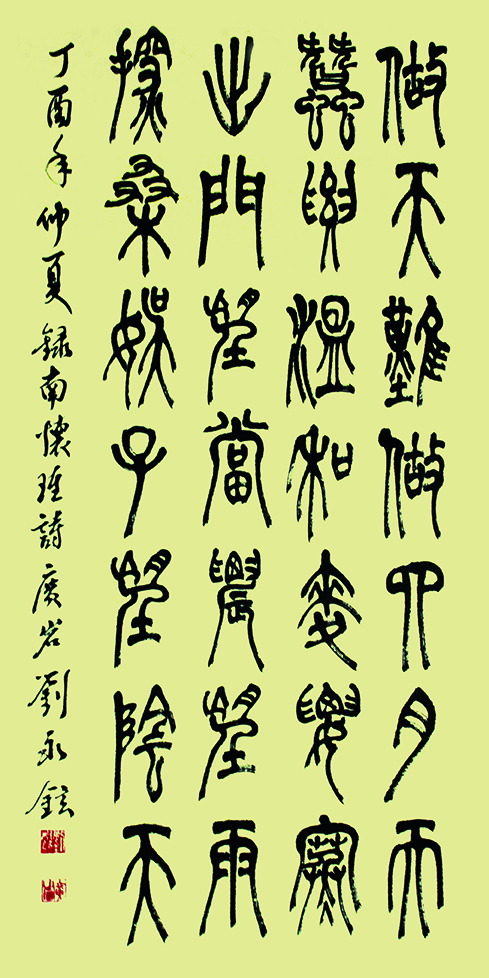 做天難做四月天
蠶要溫和麥要寒
出門望當農望雨
採桑娘子望陰天
丁酉年仲夏錄南懷瑾詩廣岩劉永鉉